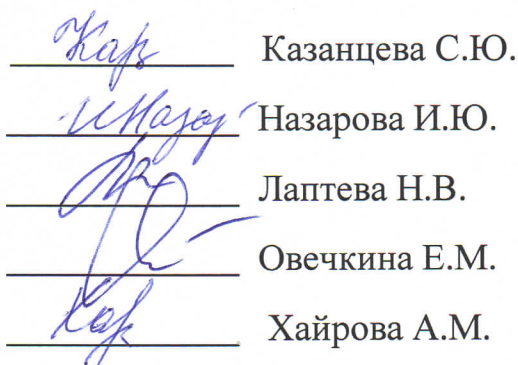 Казанцева С.Ю.
Назарова И.Ю.
Лаптева Н.В.
Овечкина Е.М.
Хайрова А.М.